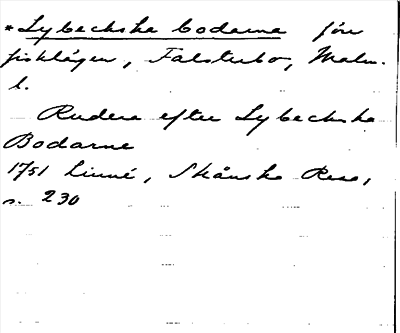 *Lybeckska bodarna förr
fiskläger, Falsterbo, Malm.
l.
Rudera efter Lybechska
Bodarne
1751 Linné, Skånska Resa,
s. 230